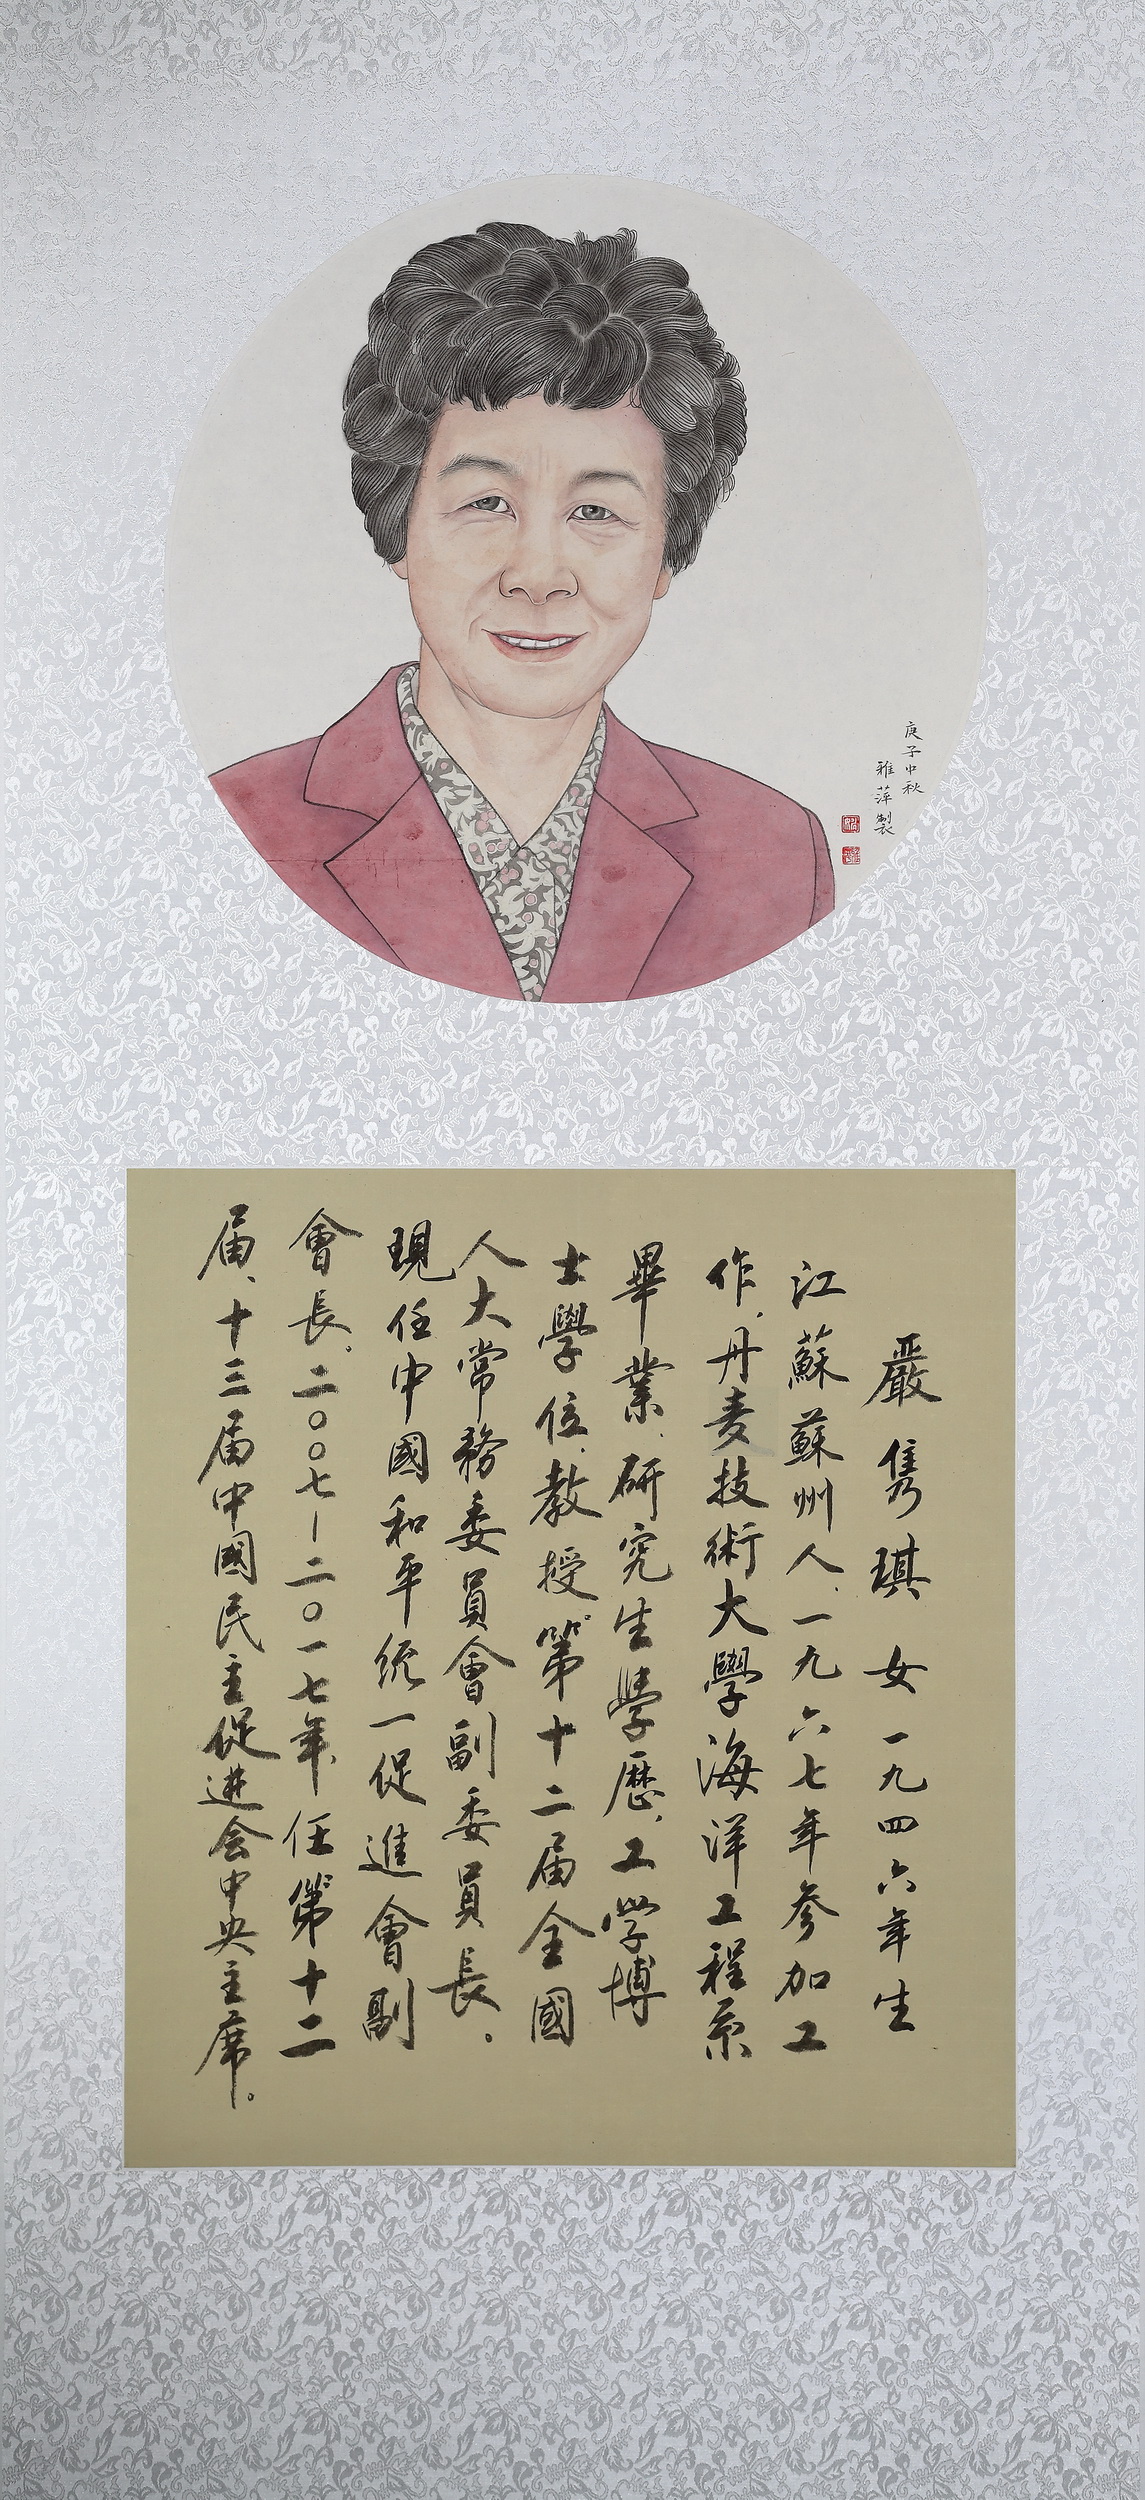 庚子中秋
雅萍製
嚴雋琪 女 一九四六年生
江蘇蘇州人、一九六七年参加工
作、丹麦技術大學海洋工程系
畢業、研究生學歷、工学博
士學位、教授第十二届全國
人大常務委員會副委員長、
現任中國和平统一促進會副
會長、二〇〇七—二〇一七年、任第十二
届、十三届中國民主促进会中央主席。